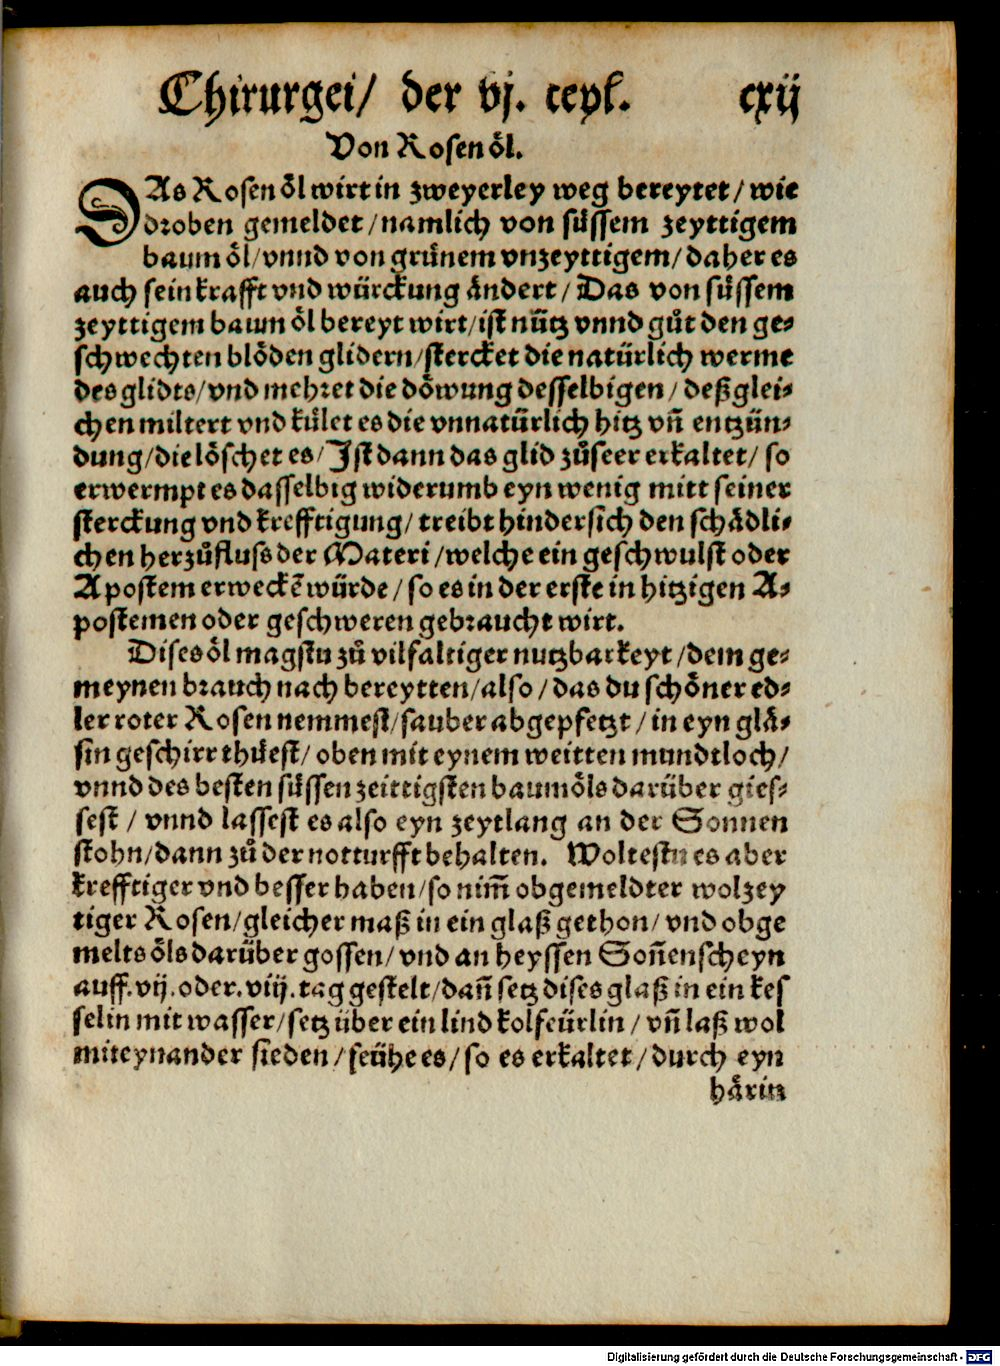 Chirurgei/ der vj. teyl. cxij
Von Rosen oͤl.
DAs Rosen oͤl wirt in zweyerley weg bereytet/ wie
droben gemeldet/ namlich von suͤssem zeyttigem
baum oͤl/ vnnd von gruͤnem vnzeyttigem/ daher es
auch sein krafft vnd wuͤrckung aͤndert/ Das von suͤssem
zeyttigem baum oͤl bereyt wirt/ ist nuͤtz vnnd guͦt den ge⸗
schwechten bloͤden glidern/ stercket die natuͤrlich werme
des glidts/ vnd mehret die doͤwung desselbigen/ deßglei⸗
chen miltert vnd kuͤlet es die vnnatuͤrlich hitz vñ entzuͤn⸗
dung/ die loͤschet es/ Ist dann das glid zuͦ seer erkaltet/ so
erwermpt es dasselbig widerumb eyn wenig mitt seiner
sterckung vnd krefftigung/ treibt hindersich den schaͤdli⸗
chen herzuͦfluss der Materi/ welche ein geschwulst oder
Apostem erweckẽ wuͤrde/ so es in der erste in hitzigen A⸗
postemen oder geschweren gebraucht wirt.
Dises oͤl magstu zuͦ vilfaltiger nutzbarkeyt/ dem ge⸗
meynen brauch nach bereytten/ also/ das du schoͤner ed⸗
ler roter Rosen nemmest/ sauber abgepfetzt/ in eyn glaͤ⸗
sin geschirr thuͤest/ oben mit eynem weitten mundtloch/
vnnd des besten suͤssen zeittigsten baumoͤls daruͤber gies⸗
sest/ vnnd lassest es also eyn zeytlang an der Sonnen
stohn/ dann zuͦ der notturfft behalten. Woltestu es aber
krefftiger vnd besser haben/ so nim̃ obgemeldter wolzey
tiger Rosen/ gleicher maß in ein glaß gethon/ vnd obge
melts oͤls daruͤber gossen/ vnd an heyssen Soñenscheyn
auff. vij. oder. viij. tag gestelt/ dañ setz dises glaß in ein kes
selin mit wasser/ setz uͤber ein lind kolfeuͤrlin/ vñ laß wol
miteynander sieden/ seuͤhe es/ so es erkaltet/ durch eyn
haͤrin
Digitalisierung gefördert durch die Deutsche Forschungsgemeinschaft - DFG